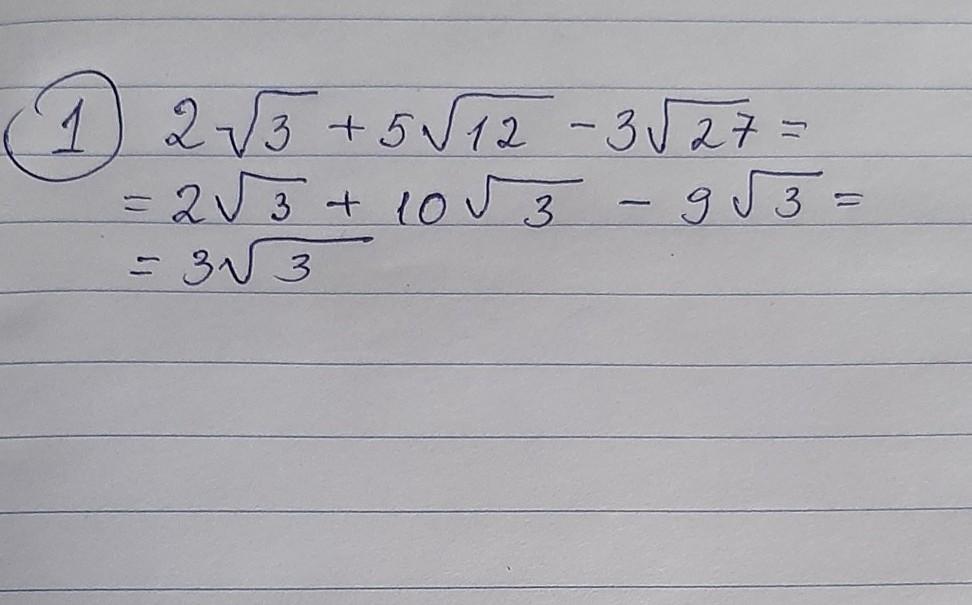 1 2√3 + 5√12 - 3√27 =
= 2√3 + 10√3 - 9√3 =
= 3√3